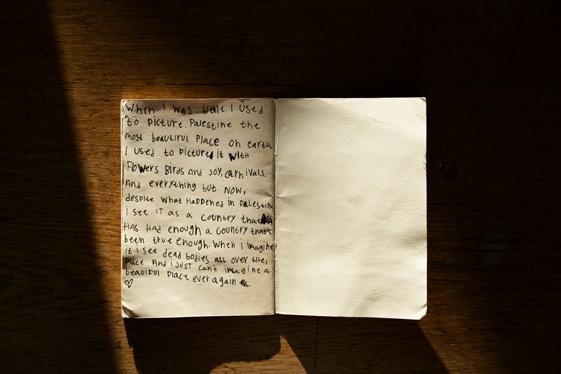 When I was little I used
to picture Palestine the
most beautiful place on earth
I used to picture it with
Flowers Birds and joy, carnivals,
And everything but NOW,
despite what Happened in Palestine
I see it as a country that
Has Had enough a country that's
been thue enough. When I imagine
it I see dead bodies all over the
place And I just can't imagine a
beautiful place ever again
♡